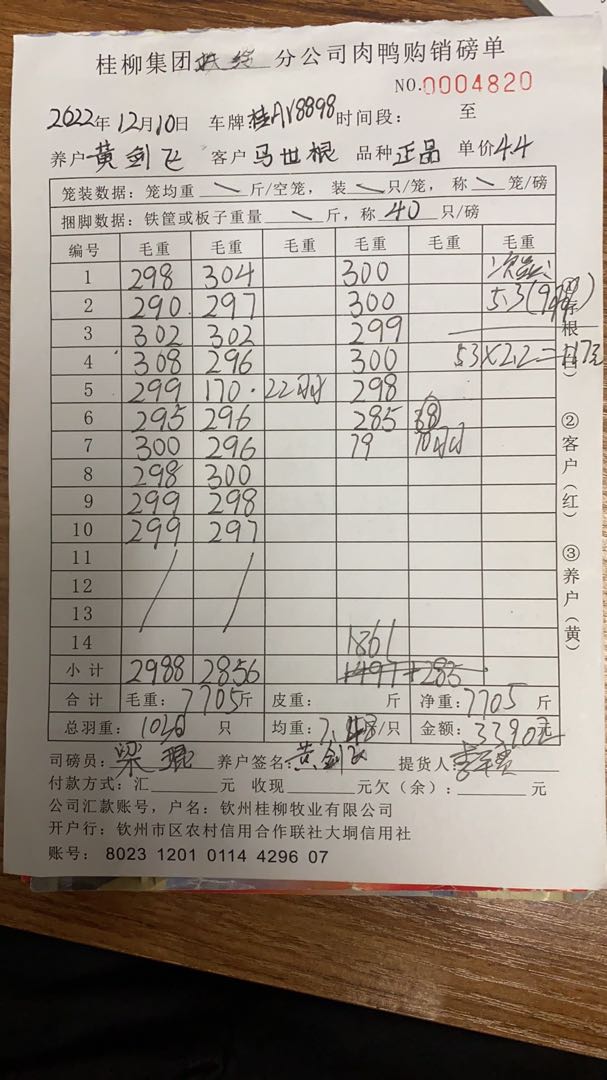 桂柳集团 分公司肉鸭购销磅单
NO.0004820
2022年12月10日 车牌桂AY8898时间段： 至
养户黄剑飞 客户马世根 品种正品 单价4.4
笼装数据：笼均重 \ 斤/空笼，装 \ 只/笼，称 \ 笼/磅
捆脚数据：铁筐或板子重量 \ 斤，称 40 只/磅
编号 毛重 毛重 毛重 毛重 毛重 毛重
1 298 304 300
2 290 297 300 5.3
3 302 302 299
4 308 296 300 53×2.2=
5 299 170 22 298
6 295 296 285 38
7 300 296 79 10
8 298 300
9 299 298
10 299 297
11
12
13
14 1861
小计 2988 2856 1497+285
合计 毛重：7705斤 皮重： 斤 净重：7705斤
总羽重： 只 均重： 斤/只 金额：3390元
司磅员： 养户签名：黄剑飞 提货人：
付款方式：汇 元 收现 元欠（余）： 元
公司汇款账号，户名：钦州桂柳牧业有限公司
开户行：钦州市区农村信用合作联社大垌信用社
账号： 8023 1201 0114 4296 07
①存根(白) ②客户(红) ③养户(黄)